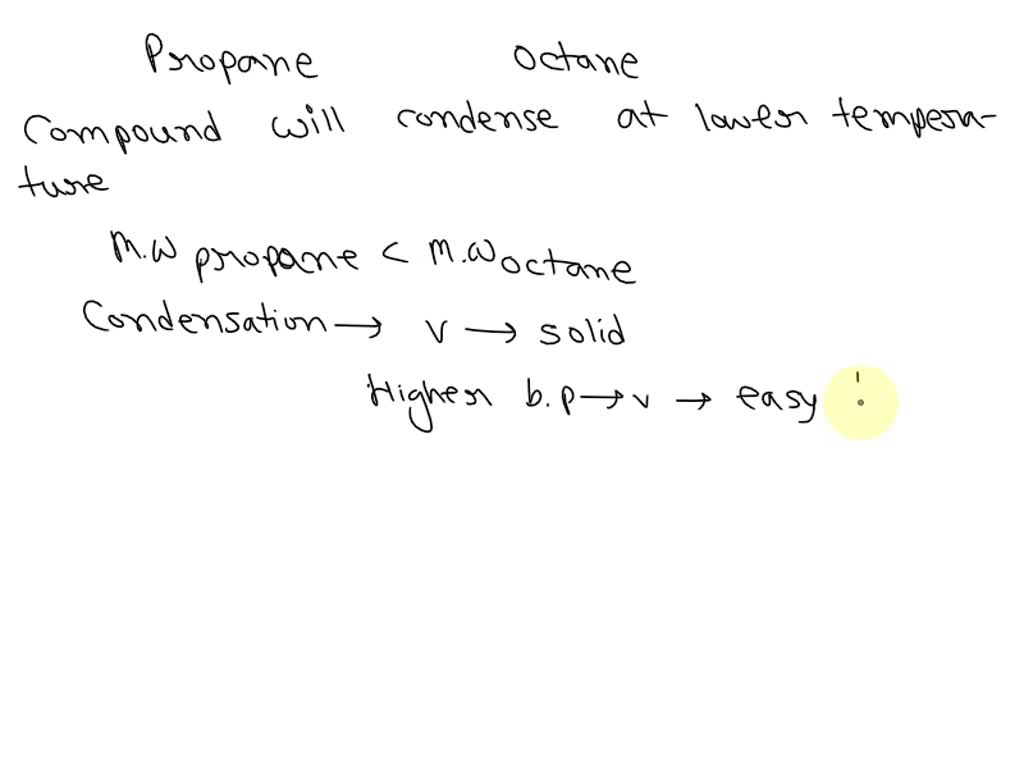 Propane Octane
Compound will condense at lower tempera-
ture
M.W propane < M.W octane
Condensation → V → solid
Higher b.p → v → easy